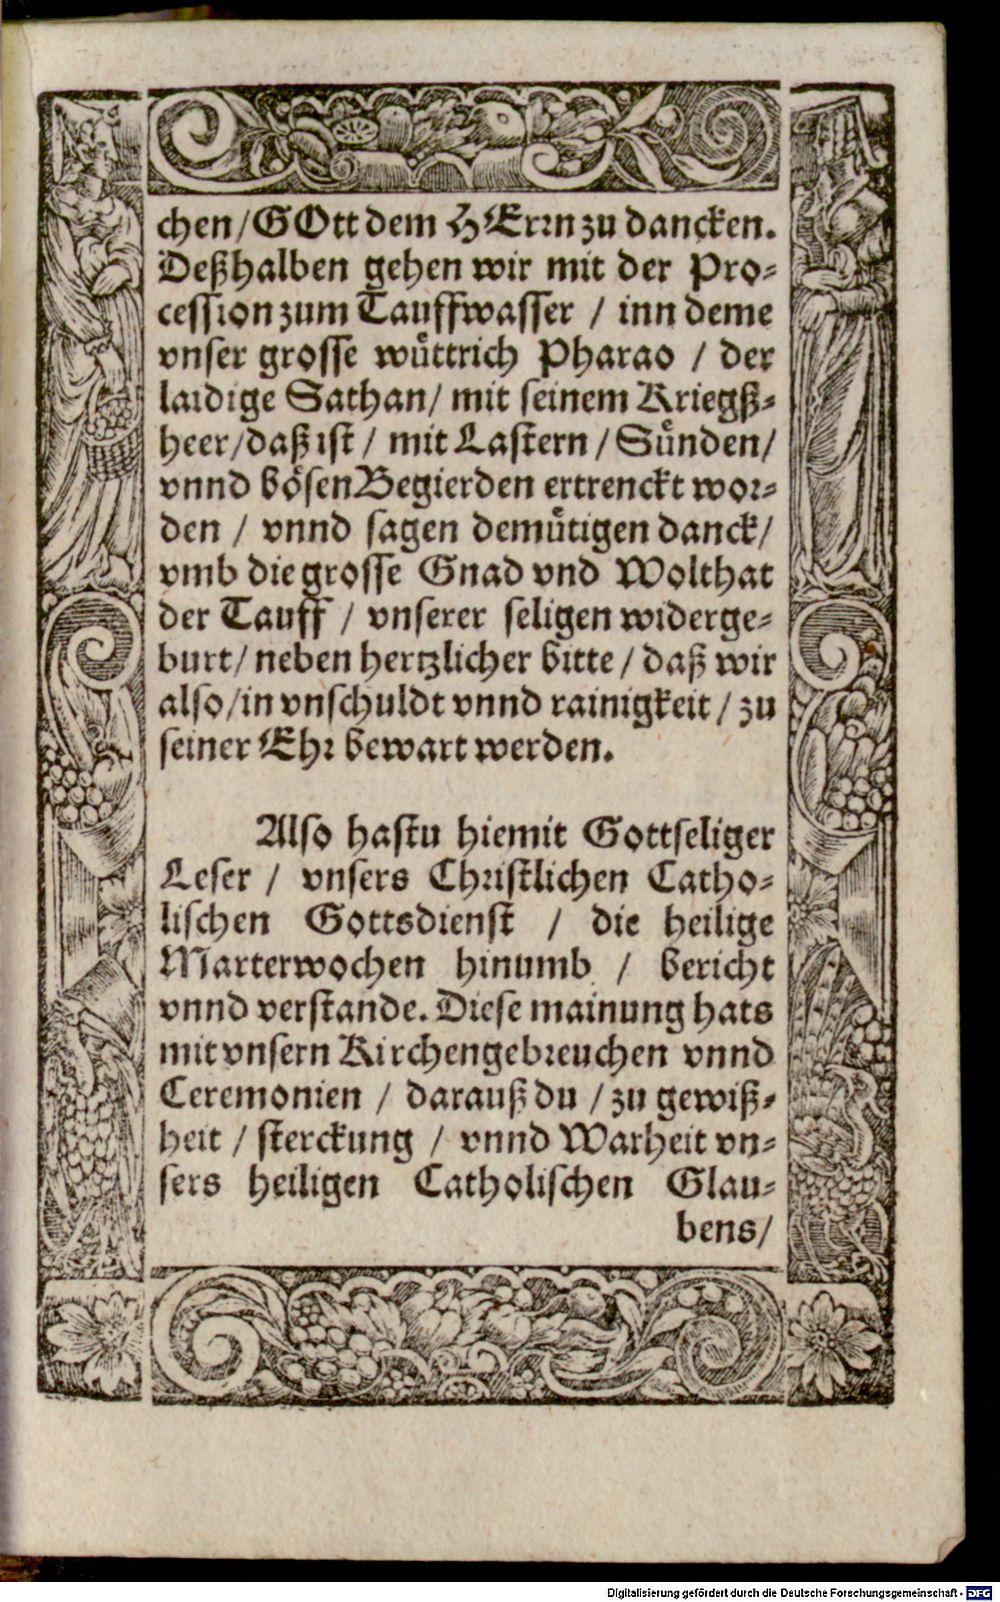 chen/GOtt dem HErrn zu dancken.
Deßhalben gehen wir mit der Pro-
cession zum Tauffwasser / inn deme
vnser grosse wuͤttrich Pharao / der
laidige Sathan/ mit seinem Kriegß-
heer/daß ist / mit Lastern / Suͤnden/
vnnd boͤsen Begierden ertrenckt wor-
den / vnnd sagen demuͤtigen danck/
vmb die grosse Gnad vnd Wolthat
der Tauff / vnserer seligen widerge-
burt/ neben hertzlicher bitte / daß wir
also/in vnschuldt vnnd rainigkeit / zu
seiner Ehr bewart werden.
Also hastu hiemit Gottseliger
Leser / vnsers Christlichen Catho-
lischen Gottsdienst / die heilige
Marterwochen hinumb / bericht
vnnd verstande. Diese mainung hats
mit vnsern Kirchengebreuchen vnnd
Ceremonien / darauß du / zu gewiß-
heit / sterckung / vnnd Warheit vn-
sers heiligen Catholischen Glau-
bens/
Digitalisierung gefördert durch die Deutsche Forschungsgemeinschaft - DFG